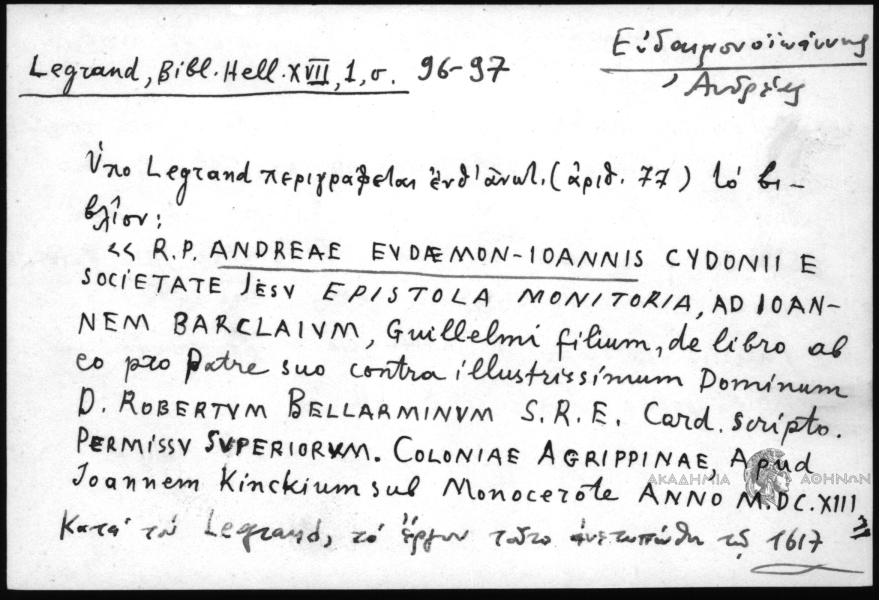 Legrand, Bibl. Hell. XVII, 1, σ. 96-97
Εὐδαιμονοϊωάννης
Ἀνδρέας
Ὑπὸ Legrand περιγράφεται ἔνθ' ἀνωτ. (ἀριθ. 77) τὸ βι-
βλίον:
<< R.P. ANDREAE EVDÆMON-IOANNIS CYDONII E
SOCIETATE JESV EPISTOLA MONITORIA, AD IOAN-
NEM BARCLAIVM, Guillelmi filium, de libro ab
eo pro Patre suo contra illustrissimum Dominum
D. ROBERTVM BELLARMINVM S.R.E. Card. scripto.
PERMISSV SVPERIORVM. COLONIAE AGRIPPINAE, Apud
Joannem Kinckium sub Monocerote ANNO M.DC.XIII >>
ΑΚΑΔΗΜΙΑ ΑΘΗΝΩΝ
Κατὰ τὸν Legrand, τὸ ἔργον τοῦτο ἀνετυπώθη τῷ 1617